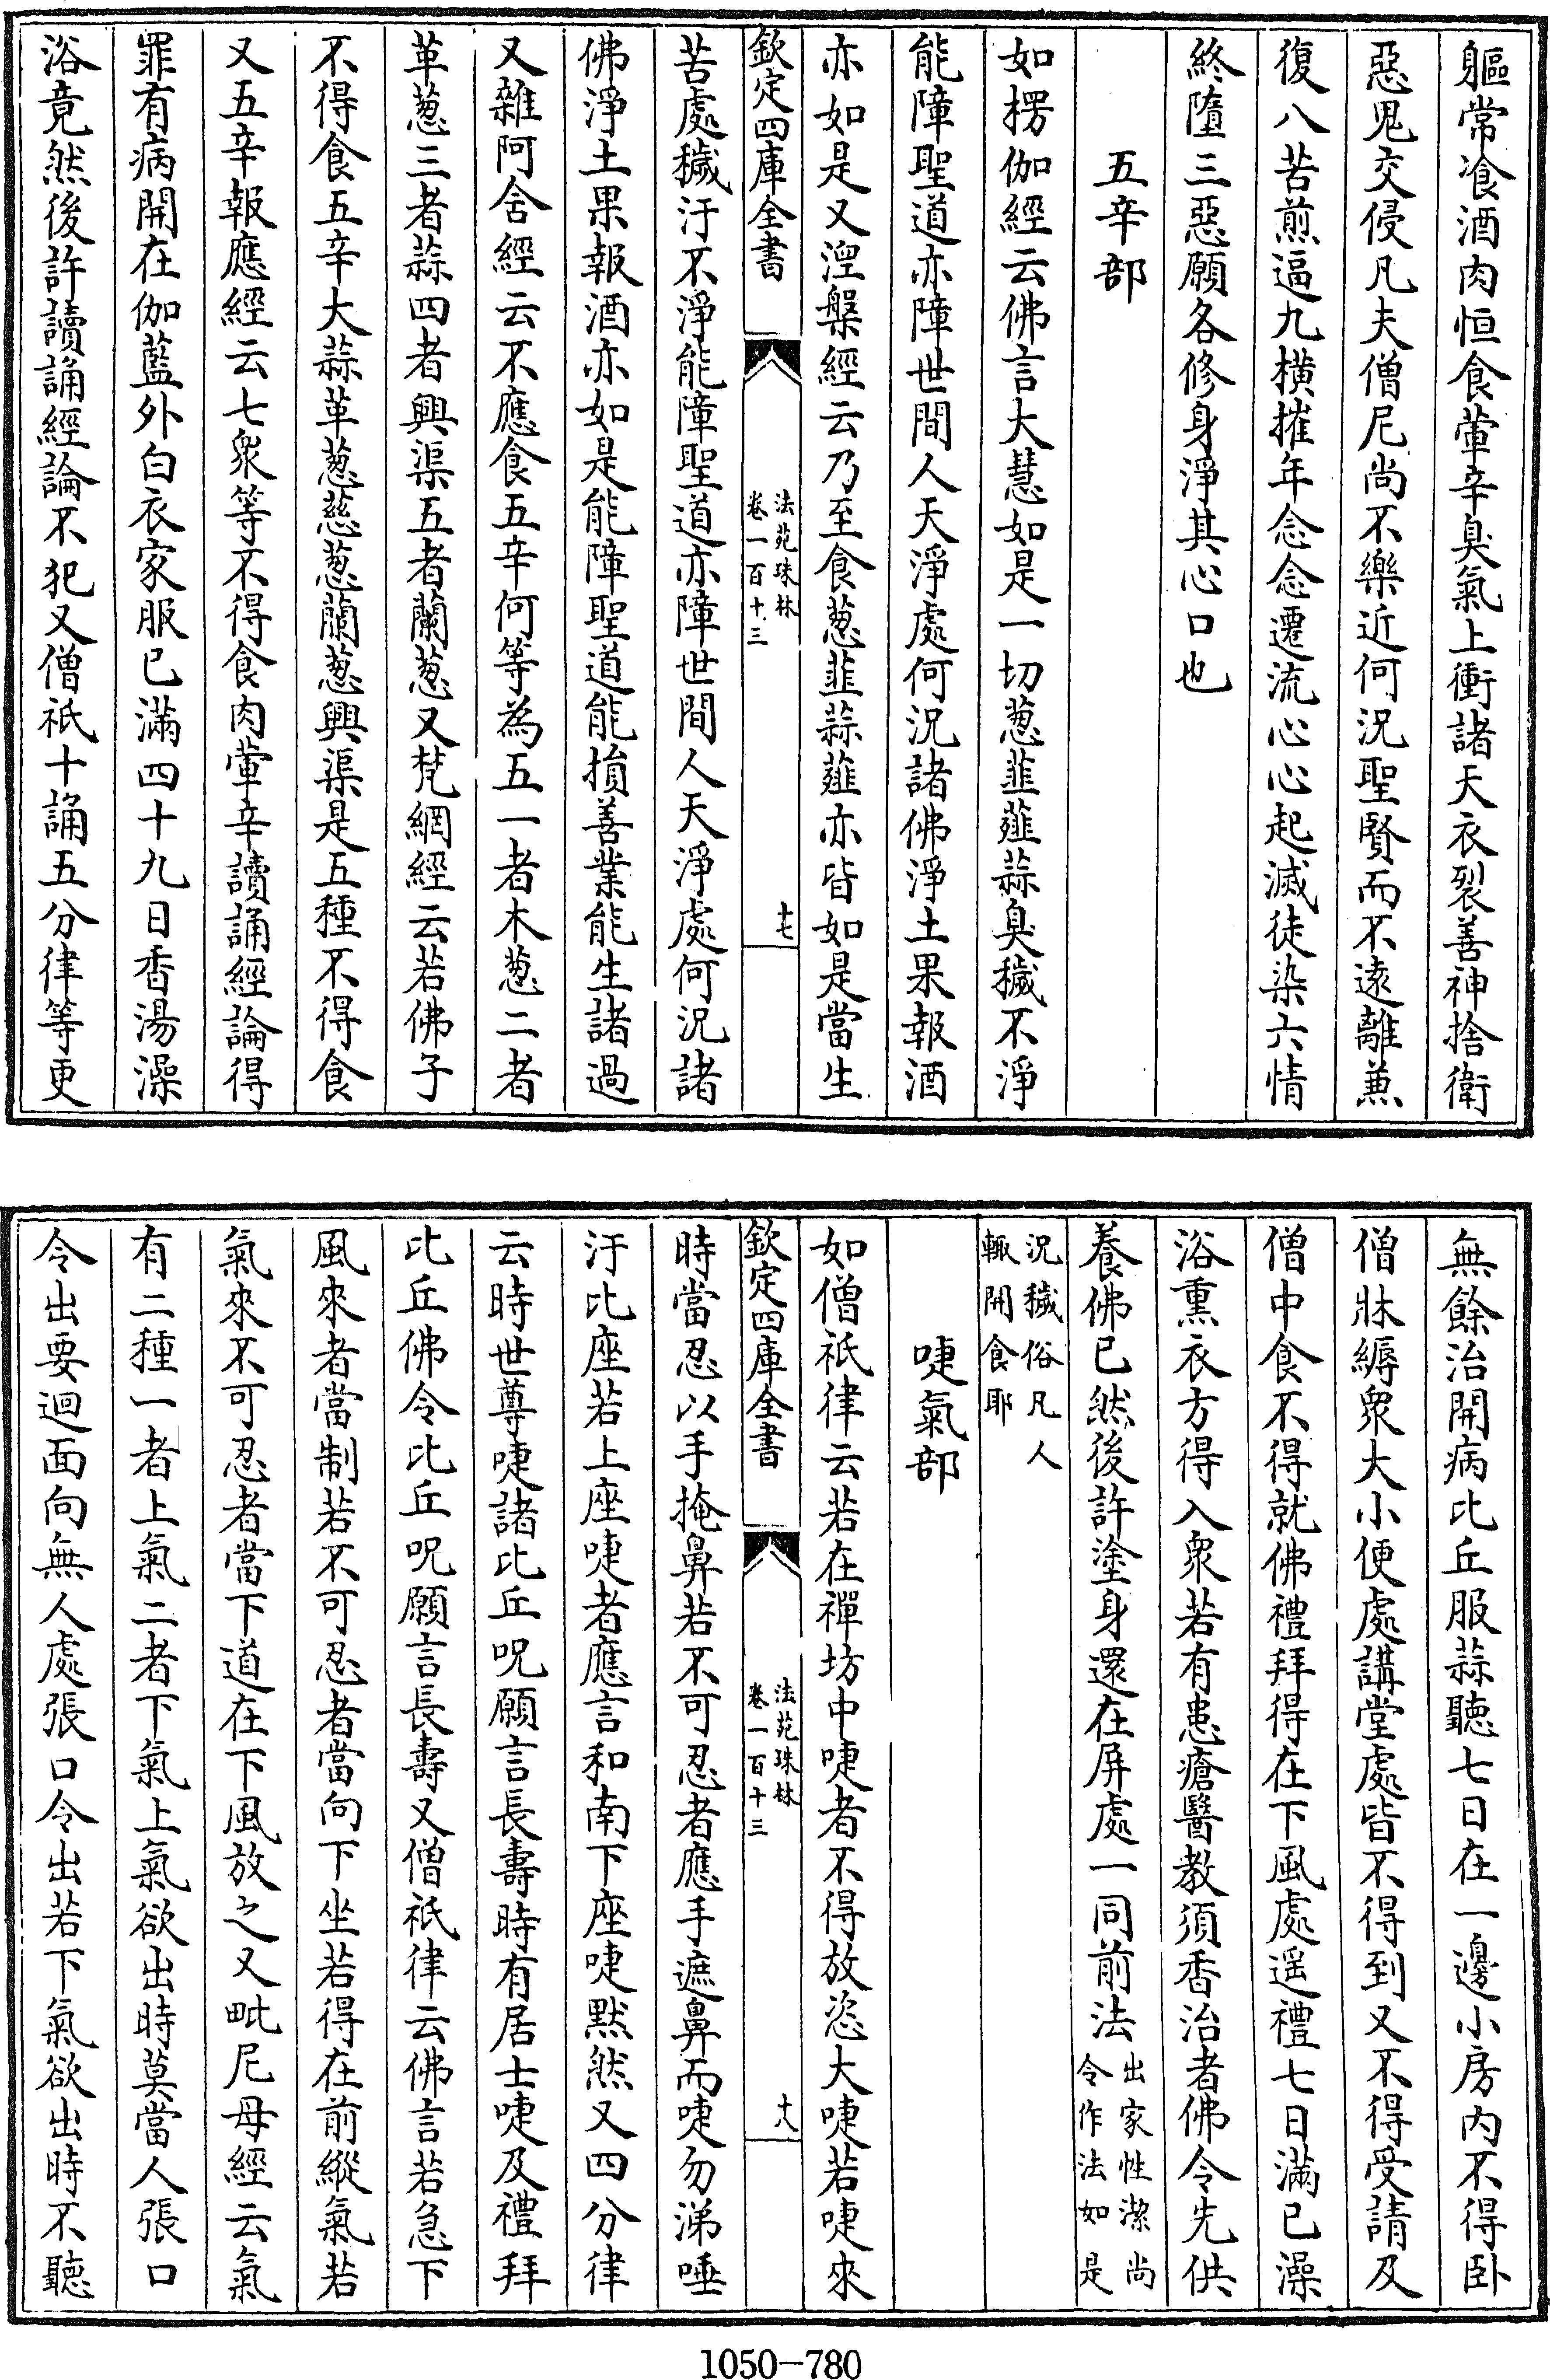 軀常飡酒肉恒食葷辛臭氣上衝諸天衣裂善神捨衛
惡鬼交侵凡夫僧尼尚不樂近何況聖賢而不逺離兼
復八苦煎逼九橫摧年念念遷流心心起滅徒染六情
終墮三惡願各修身淨其心口也
五辛部
如楞伽經云佛言大慧如是一切葱韮薤蒜臭穢不淨
能障聖道亦障世間人天淨處何況諸佛淨土果報酒
亦如是又涅槃經云乃至食葱韮蒜薤亦皆如是當生
欽定四庫全書
法苑珠林
卷一百十三
十七
苦處穢汙不淨能障聖道亦障世間人天淨處何況諸
佛淨土果報酒亦如是能障聖道能損善業能生諸過
又雜阿含經云不應食五辛何等為五一者木葱二者
革葱三者蒜四者興渠五者蘭葱又梵網經云若佛子
不得食五辛大蒜革葱慈葱蘭葱興渠是五種不得食
又五辛報應經云七衆等不得食肉葷辛讀誦經論得
罪有病開在伽藍外白衣家服已滿四十九日香湯澡
浴竟然後許讀誦經論不犯又僧祇十誦五分律等更
無餘治開病比丘服蒜聽七日在一邊小房內不得卧
僧牀縟衆大小便處講堂處皆不得到又不得受請及
僧中食不得就佛禮拜得在下風處遥禮七日滿已澡
浴熏衣方得入衆若有患瘡醫教須香治者佛令先供
養佛已然後許塗身還在屏處一同前法出家性潔尚
令作法如是
況穢俗凡人
輙開食耶
啑氣部
如僧祇律云若在禪坊中啑者不得放恣大啑若啑來
欽定四庫全書
法苑珠林
卷一百十三
十八
時當忍以手掩鼻若不可忍者應手遮鼻而啑勿涕唾
汙比座若上座啑者應言和南下座啑默然又四分律
云時世尊啑諸比丘呪願言長壽時有居士啑及禮拜
比丘佛令比丘呪願言長壽又僧祇律云佛言若急下
風來者當制若不可忍者當向下坐若得在前縱氣若
氣來不可忍者當下道在下風放之又毗尼母經云氣
有二種一者上氣二者下氣上氣欲出時莫當人張口
令出要迴面向無人處張口令出若下氣欲出時不聽
1050-780